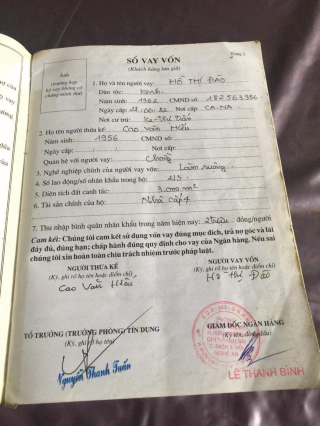 Trang 1
SỔ VAY VỐN
(Khách hàng lưu giữ)
Ảnh
(trường hợp
hộ vay không có
chứng minh thư)
1. Họ và tên người vay: HỒ THỊ ĐÀO
Dân tộc: Kinh
Năm sinh: 1962 CMND số: 187563356
Ngày cấp: Nơi cấp: CA.NA
Nơi cư trú:
2. Họ tên người thừa kế: Cao Văn Hiếu
Năm sinh: 1956 CMND số:
Ngày cấp: / Nơi cấp:
Quan hệ với người vay: Chồng
3. Nghề nghiệp chính của người vay vốn: Làm ruộng
4. Số lao động/số nhân khẩu trong hộ: 2/3
5. Diện tích đất canh tác: 3.000 m²
6. Tài sản chính của hộ: Nhà cấp 4
7. Thu nhập bình quân nhân khẩu trong năm hiện nay: 2 triệu đồng/người
Cam kết: Chúng tôi cam kết sử dụng vốn vay đúng mục đích, trả nợ gốc và lãi
đầy đủ, đúng hạn; chấp hành đúng quy định cho vay của Ngân hàng. Nếu sai
chúng tôi xin hoàn toàn chịu trách nhiệm trước pháp luật.
NGƯỜI THỪA KẾ
(Ký, ghi rõ họ tên hoặc điểm chỉ)
Cao Văn Hiếu
NGƯỜI VAY VỐN
(Ký, ghi rõ họ tên hoặc điểm chỉ)
Hồ Thị Đào
TỔ TRƯỞNG (TRƯỞNG PHÒNG) TÍN DỤNG
(Ký, ghi rõ họ tên)
Nguyễn Thanh Tuấn
GIÁM ĐỐC NGÂN HÀNG
(Ký tên, đóng dấu)
NGHỆ AN
LÊ THANH BÌNH